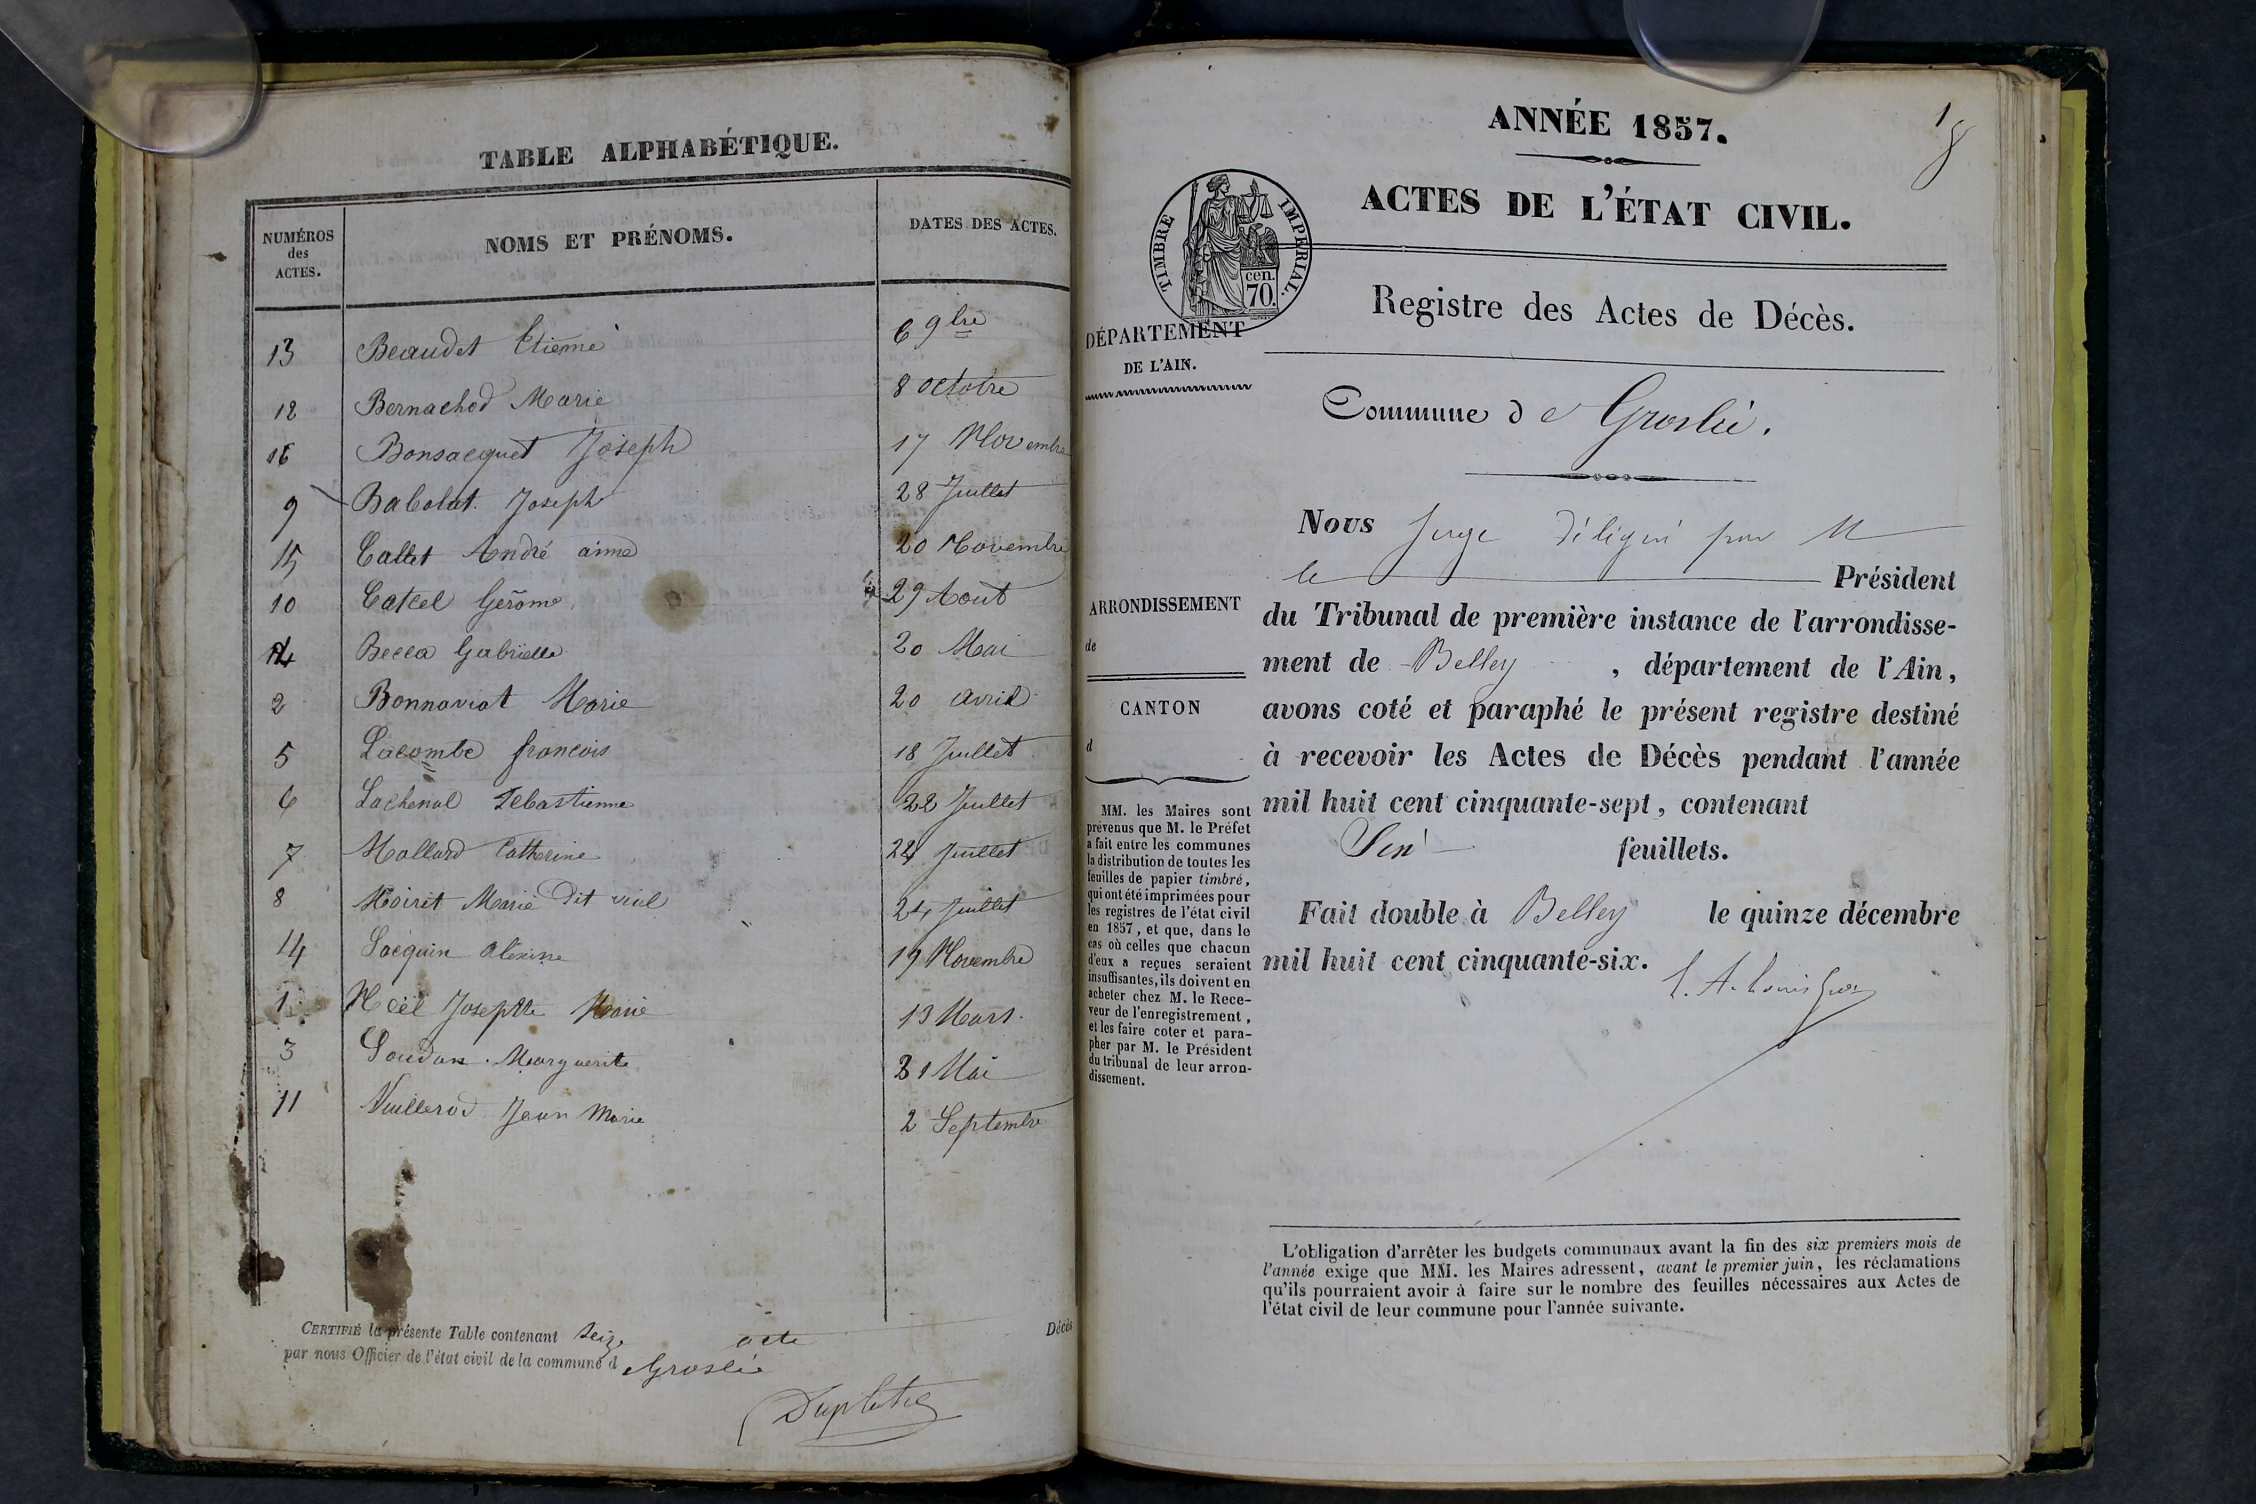 TABLE ALPHABÉTIQUE.
NUMÉROS
des
ACTES.
NOMS ET PRÉNOMS.
DATES DES ACTES.
13 Beaudet Etienne 6 9bre
12 Bernachod Marie 8 octobre
16 Bonsacquet Joseph 17 Novembre
9 Babolat Joseph 28 Juillet
15 Callet André aimé 20 Novembre
10 Catcel Gerome 29 Aout
4 Becca Gabrielle 20 Mai
2 Bonnaviat Marie 20 avril
5 Lacombe francois 18 Juillet
6 Lachenal Sebastienne 22 Juillet
7 Mallard Catherine 24 Juillet
8 Moiret Marie dit viel 24 Juillet
14 Sacquin 19 Novembre
1 Noël Josephte Marie 13 Mars
3 Soudan Marguerite 21 Mai
11 Vuillerod Jean Marie 2 Septembre
CERTIFIÉ la présente Table contenant seize acte Décès
par nous Officier de l'état civil de la commune d e Groslée
ANNÉE 1857.
1
ACTES DE L'ÉTAT CIVIL.
TIMBRE IMPERIAL.
cen.
70.
Registre des Actes de Décès.
DÉPARTEMENT
DE L'AIN.
Commune d e Groslée.
ARRONDISSEMENT
de
CANTON
d
MM. les Maires sont
prévenus que M. le Préfet
a fait entre les communes
la distribution de toutes les
feuilles de papier timbré,
qui ont été imprimées pour
les registres de l'état civil
en 1857, et que, dans le
cas où celles que chacun
d'eux a reçues seraient
insuffisantes, ils doivent en
acheter chez M. le Rece-
veur de l'enregistrement,
et les faire coter et para-
pher par M. le Président
du tribunal de leur arron-
dissement.
Nous Juge délégué par M
le Président
du Tribunal de première instance de l'arrondisse-
ment de Belley, département de l'Ain,
avons coté et paraphé le présent registre destiné
à recevoir les Actes de Décès pendant l'année
mil huit cent cinquante-sept, contenant
feuillets.
Fait double à Belley le quinze décembre
mil huit cent cinquante-six.
L'obligation d'arrêter les budgets communaux avant la fin des six premiers mois de
l'année exige que MM. les Maires adressent, avant le premier juin, les réclamations
qu'ils pourraient avoir à faire sur le nombre des feuilles nécessaires aux Actes de
l'état civil de leur commune pour l'année suivante.